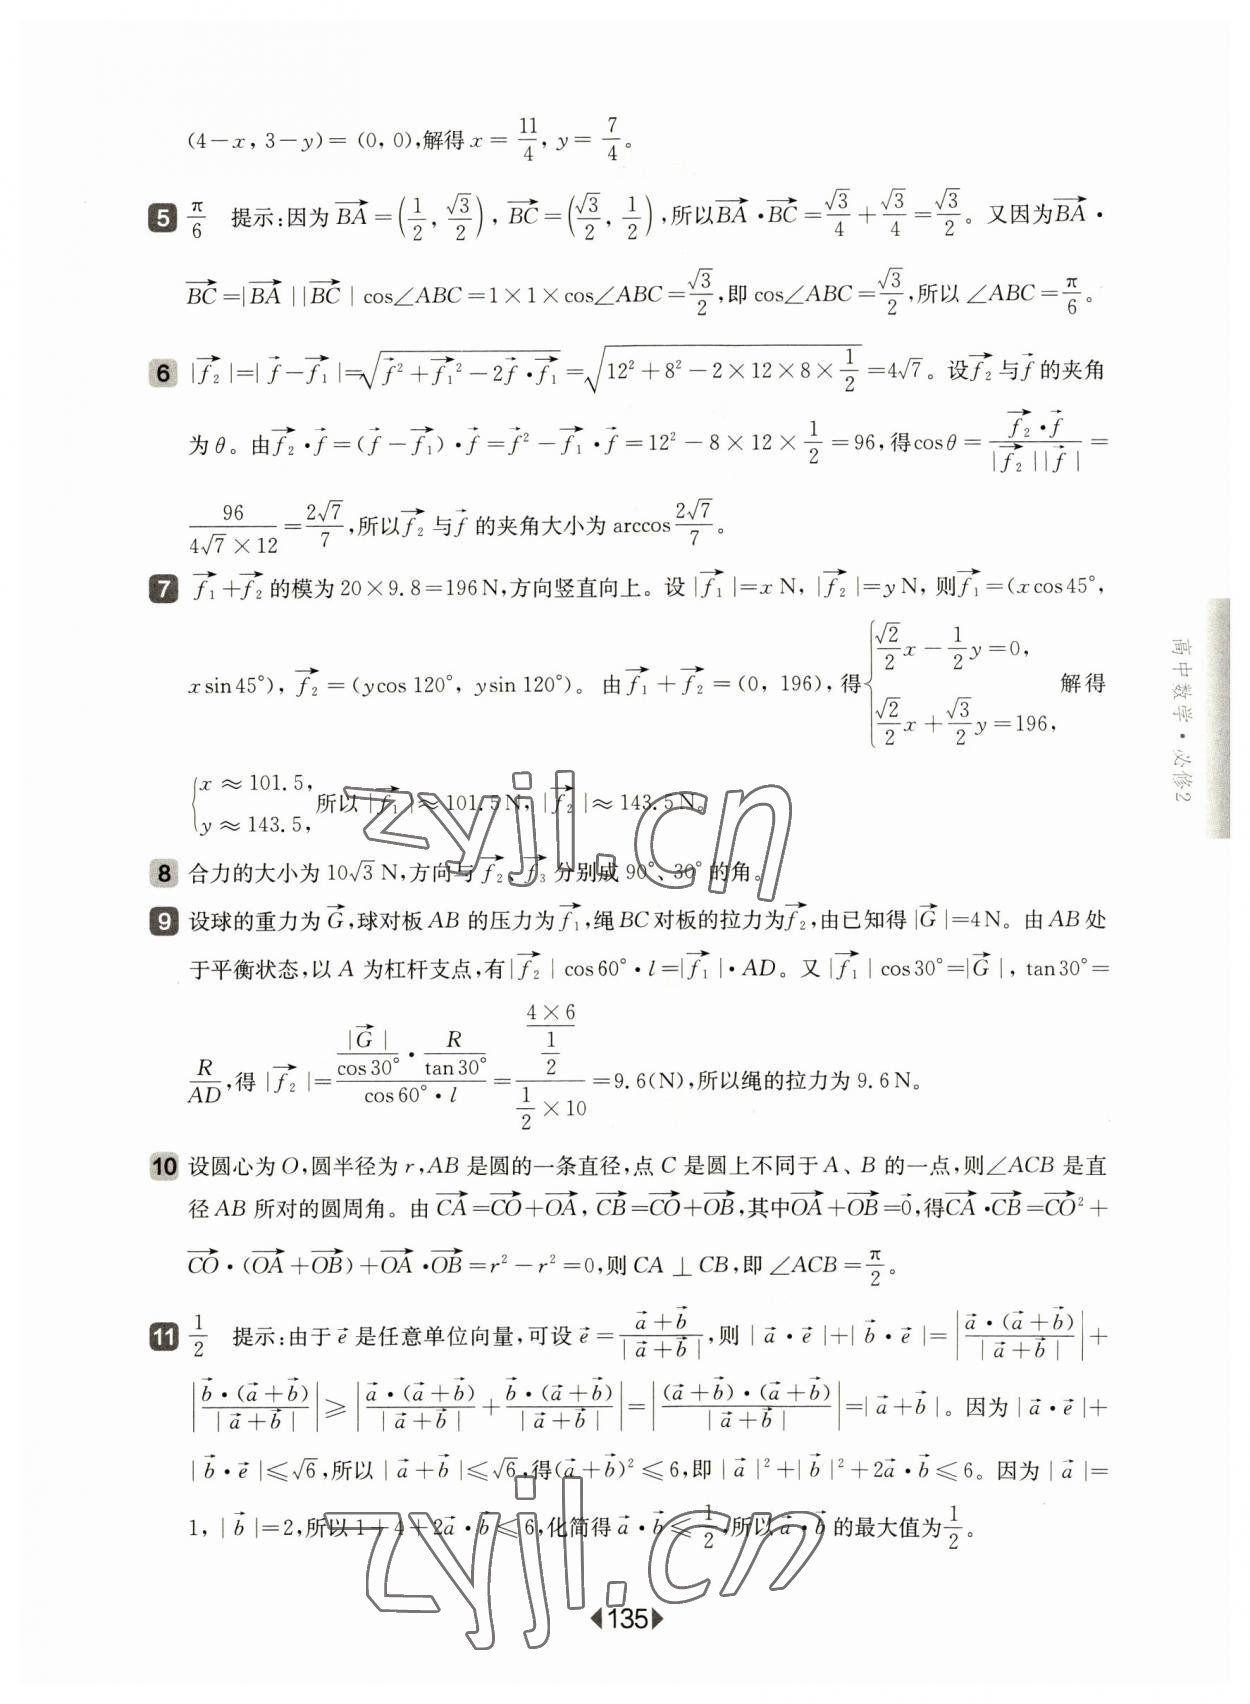 (4－x, 3－y)＝(0, 0),解得 x＝11/4, y＝7/4。
5 π/6　提示:因为 \overrightarrow{BA}＝(1/2, √3/2), \overrightarrow{BC}＝(√3/2, 1/2),所以\overrightarrow{BA}·\overrightarrow{BC}＝√3/4＋√3/4＝√3/2。又因为\overrightarrow{BA}·
\overrightarrow{BC}＝|\overrightarrow{BA}||\overrightarrow{BC}|cos∠ABC＝1×1×cos∠ABC＝√3/2,即 cos∠ABC＝√3/2,所以 ∠ABC＝π/6。
6 |\vec{f_2}|＝|\vec{f}－\vec{f_1}|＝√(\vec{f}²＋\vec{f_1}²－2\vec{f}·\vec{f_1})＝√(12²＋8²－2×12×8×1/2)＝4√7。设\vec{f_2}与\vec{f}的夹角
为 θ。由\vec{f_2}·\vec{f}＝(\vec{f}－\vec{f_1})·\vec{f}＝\vec{f}²－\vec{f_1}·\vec{f}＝12²－8×12×1/2＝96,得cosθ＝(\vec{f_2}·\vec{f})/(|\vec{f_2}||\vec{f}|)＝
96/(4√7×12)＝2√7/7,所以\vec{f_2}与\vec{f}的夹角大小为 arccos 2√7/7。
7 \vec{f_1}＋\vec{f_2}的模为 20×9.8＝196 N,方向竖直向上。设|\vec{f_1}|＝x N, |\vec{f_2}|＝y N, 则\vec{f_1}＝(x cos45°,
x sin45°), \vec{f_2}＝(y cos 120°, y sin 120°)。由\vec{f_1}＋\vec{f_2}＝(0, 196),得{√2/2 x－1/2 y＝0, √2/2 x＋√3/2 y＝196, 解得
{x≈101.5, y≈143.5, 所以|\vec{f_1}|≈101.5 N, |\vec{f_2}|≈143.5 N。
8 合力的大小为 10√3 N,方向与\vec{f_2}、\vec{f_3}分别成 90°、30°的角。
9 设球的重力为\vec{G},球对板 AB 的压力为\vec{f_1},绳 BC 对板的拉力为\vec{f_2},由已知得|\vec{G}|＝4 N。由 AB 处
于平衡状态,以 A 为杠杆支点,有|\vec{f_2}|cos60°·l＝|\vec{f_1}|·AD。又|\vec{f_1}|cos30°＝|\vec{G}|, tan30°＝
R/AD,得|\vec{f_2}|＝(|\vec{G}|/cos30°·R/tan30°)/(cos60°·l)＝((4×6)/(1/2))/(1/2×10)＝9.6(N),所以绳的拉力为 9.6 N。
10 设圆心为 O,圆半径为 r,AB 是圆的一条直径,点 C 是圆上不同于 A、B 的一点,则∠ACB 是直
径 AB 所对的圆周角。由\overrightarrow{CA}＝\overrightarrow{CO}＋\overrightarrow{OA}, \overrightarrow{CB}＝\overrightarrow{CO}＋\overrightarrow{OB},其中\overrightarrow{OA}＋\overrightarrow{OB}＝\vec{0},得\overrightarrow{CA}·\overrightarrow{CB}＝\overrightarrow{CO}²＋
\overrightarrow{CO}·(\overrightarrow{OA}＋\overrightarrow{OB})＋\overrightarrow{OA}·\overrightarrow{OB}＝r²－r²＝0,则 CA⊥CB,即∠ACB＝π/2。
11 1/2　提示:由于\vec{e}是任意单位向量,可设\vec{e}＝(\vec{a}＋\vec{b})/|\vec{a}＋\vec{b}|,则|\vec{a}·\vec{e}|＋|\vec{b}·\vec{e}|＝|\vec{a}·(\vec{a}＋\vec{b})/|\vec{a}＋\vec{b}||＋
|\vec{b}·(\vec{a}＋\vec{b})/|\vec{a}＋\vec{b}||≥|\vec{a}·(\vec{a}＋\vec{b})/|\vec{a}＋\vec{b}|＋\vec{b}·(\vec{a}＋\vec{b})/|\vec{a}＋\vec{b}||＝|(\vec{a}＋\vec{b})·(\vec{a}＋\vec{b})/|\vec{a}＋\vec{b}||＝|\vec{a}＋\vec{b}|。因为|\vec{a}·\vec{e}|＋
|\vec{b}·\vec{e}|≤√6,所以|\vec{a}＋\vec{b}|≤√6,得(\vec{a}＋\vec{b})²≤6,即|\vec{a}|²＋|\vec{b}|²＋2\vec{a}·\vec{b}≤6。因为|\vec{a}|＝
1, |\vec{b}|＝2,所以 1＋4＋2\vec{a}·\vec{b}≤6,化简得\vec{a}·\vec{b}≤1/2,所以\vec{a}·\vec{b}的最大值为1/2。
高中数学·必修2
135
zyjl.cn
zyjl.cn